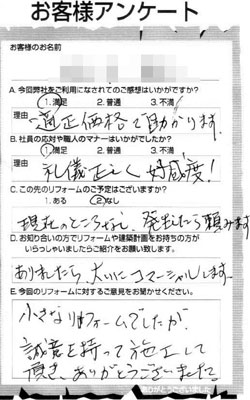 お客様アンケート
お客様のお名前
A.今回弊社をご利用になされてのご感想はいかがですか?
1.満足 2.普通 3.不満
理由
適正価格で助かります.
B.社員の応対や職人のマナーはいかがでしたか?
1.満足 2.普通 3.不満
理由
礼儀正しく好感度!
C.この先のリフォームのご予定はございますか?
1.ある 2.なし
現在のところなし、発生したら頼みます
D.お知り合いの方でリフォームや建築計画をお持ちの方が
いらっしゃいましたらご紹介をお願い致します。
ありましたら、大いにコマーシャルします。
E.今回のリフォームに対するご意見をお聞かせください。
小さなリフォームでしたが
誠意を持って施工して
頂き、ありがとうございました。
ありがとうございました